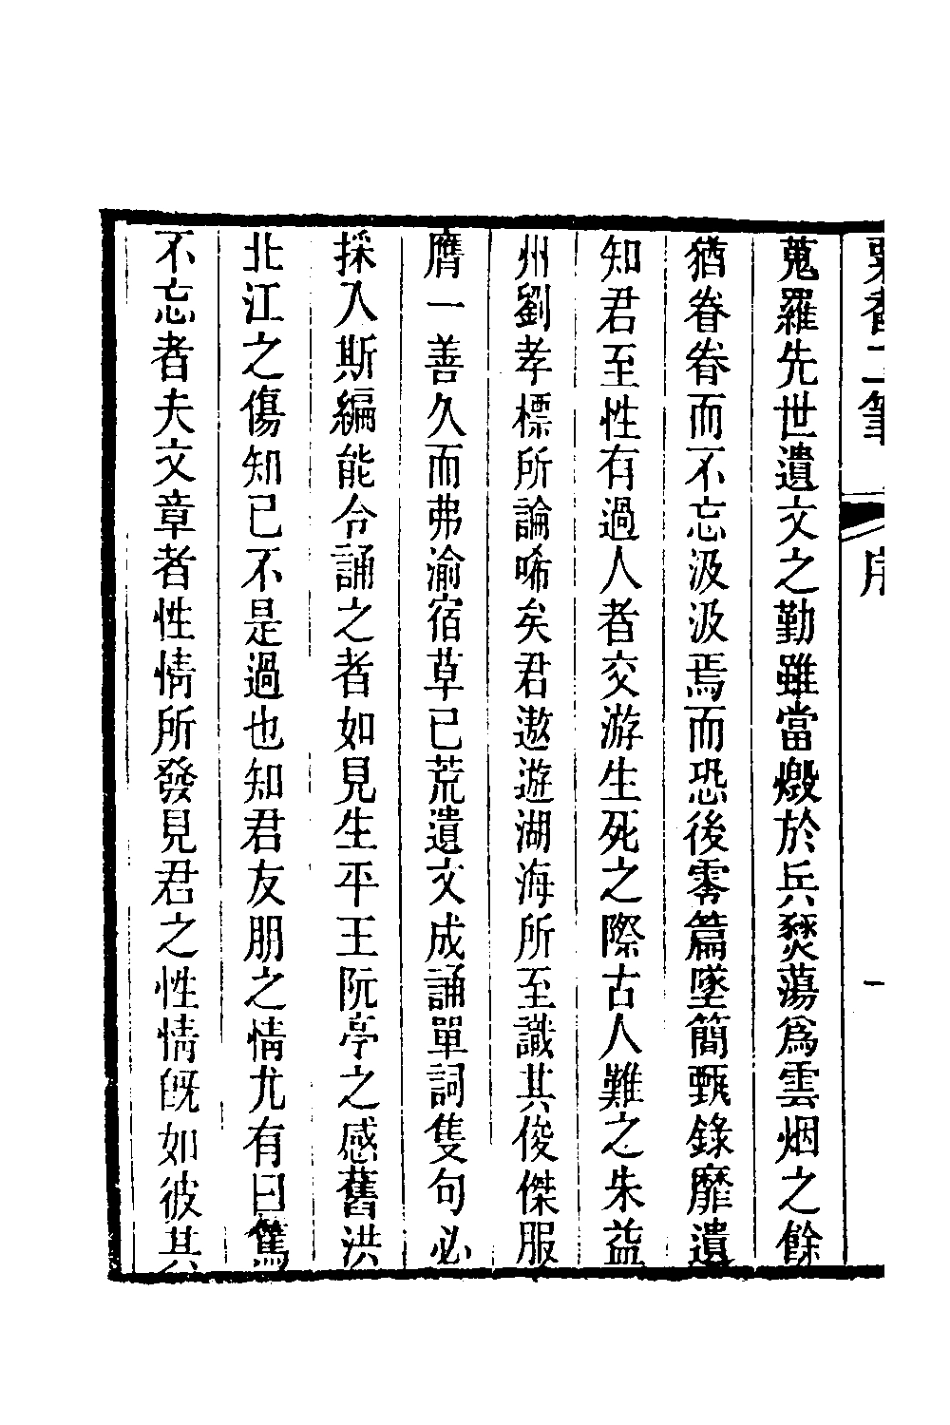 粟香二筆 序 一
蒐羅先世遺文之勤雖當燬於兵燹蕩爲雲烟之餘
猶眷眷而不忘汲汲焉而恐後零篇墜簡甄錄靡遺
知君至性有過人者交游生死之際古人難之朱益
州劉孝標所論唏矣君遨遊湖海所至識其俊傑服
膺一善久而弗渝宿草已荒遺文成誦單詞隻句必
採入斯編能令誦之者如見生平王阮亭之感舊洪
北江之傷知己不是過也知君友朋之情尤有曰篤
不忘者夫文章者性情所發見君之性情旣如彼其